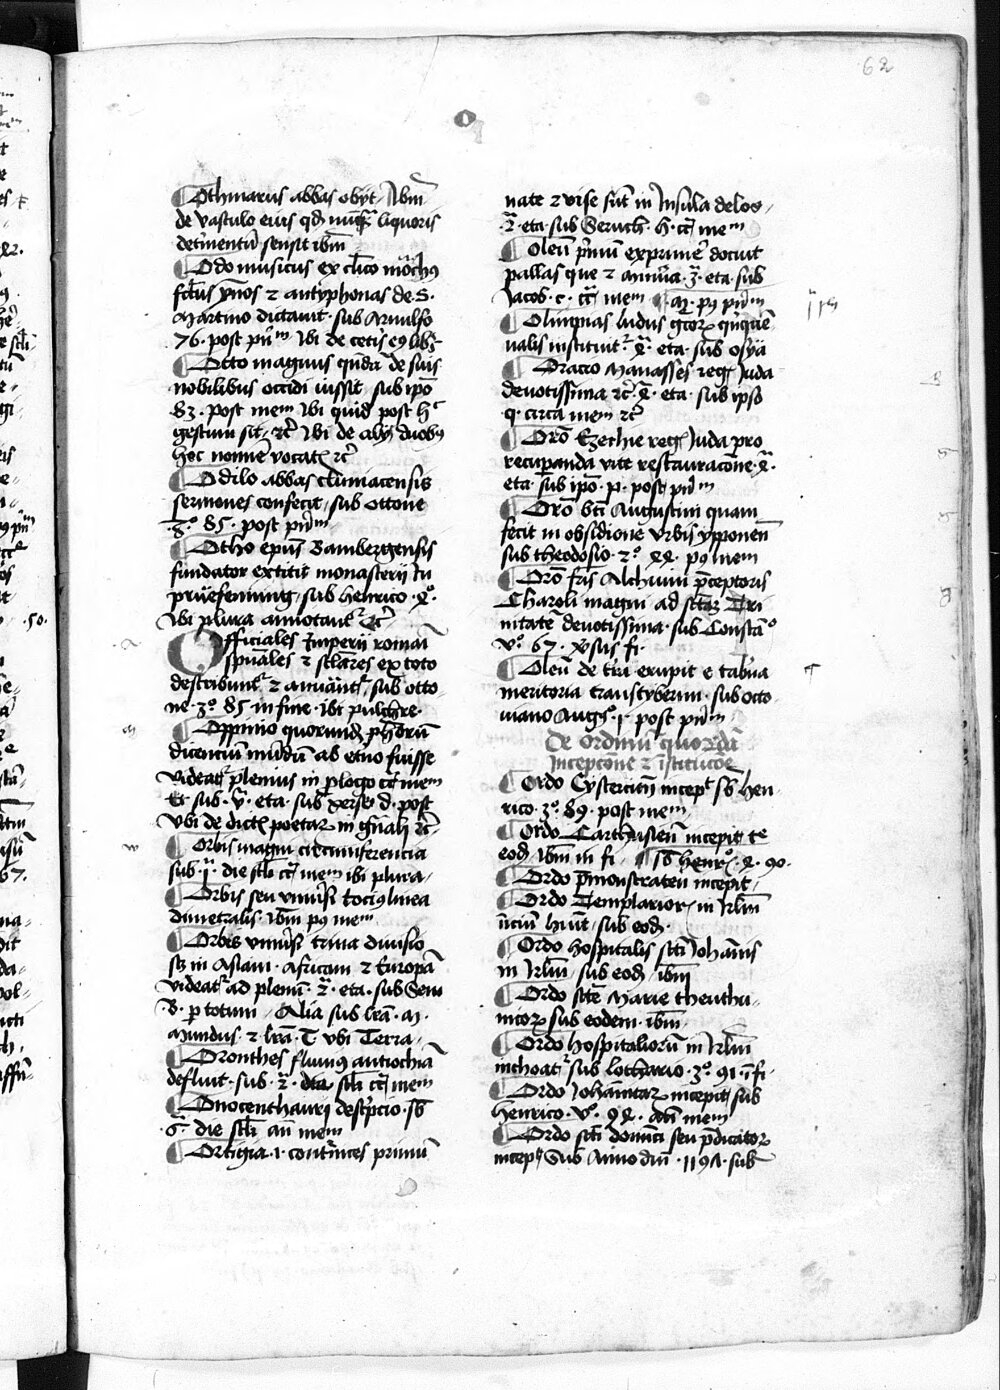 62
O
Othmarus abbas obijt · Ibm̄
de vasculo eius qd̄ liquoris
detrimentū sensit ibm̄
Odo musicus ex cl̄ico mōchꝯ
fc̄tus ymnos ⁊ antyphonas de · S ·
Martino dictauit · sub Arnulfo
76 · post pnᵐ Vbi de cet̄is eꝯ libꝫ
Otto magnus qndā de suis
nobilibus occidi iussit sub ip̄o
83 · post mem Vbi quid post hᶜ
gestum sit · ⁊c̄ Vbi de alijs duobꝯ
hoc nomine vocatꝭ ⁊c̄
Odilo abbas cluniacensis
sermones confecit · sub ottone
3º 85 · post pnᵐ
Otho epūs Bambergensis
fundator extitit monasterij in
prüefenning · sub henrico · 4º ·
Vbi plura annotant᷑ ⁊c̄
Officiales Imperij romani
spūales ⁊ scl̄ares ex toto
describunt᷑ ⁊ sub otto-
ne · 3º · 85 in fine · Vbi pulchre ·
Oppinio quorundꝫ ph̄orū
dicenciū mūdū ab et̄no fuisse
videat᷑ plenius in prologo mem
Et sub · v̄ · eta · sub xerse · d · post
vbi de dictꝭ poetaꝝ in gn̄ali ⁊c̄
Orbis magni circumferencia
sub · ij · die scl̄i mem ibi plura ·
Orbis seu vniuersi tociꝯ linea
dimetralis · ibm̄ pꝯ mem
Orbis vniuersi trina diuisio
sꝫ in Asiam · Africam ⁊ Europā
videat᷑ ad plenū · 2ᵃ · eta · sub Sem
B · per totum · Alia sub lr̄a · M ·
Mundus ⁊ lr̄a · T vbi Terra ·
Oronthes fluuius antiochiā
defluit · sub · 2ᵃ · scl̄i mem
Onocenthaurꝯ descripcio · sb
6ᵃ · die scl̄i an̄ mem
Ortigia · 1 · primū
nate ⁊ vise sūt in Insula delos ·
2ᵃ · eta · sub Seruch · h · mem
Oleū primū exprimē docuit
pallas que ⁊ minerua · 3ᵃ · eta · sub
Jacob · c · mem · M · pꝯ pnᵐ
Olimpias ludus grecoꝝ qnquē-
nalis instituit᷑ · 4ᵃ · eta · sub osya
Oracio Manasses regꝭ Juda
deuotissima ⁊c̄ 4ᵃ · eta · sub ipso
q · circa mem ⁊c̄
Orō Ezechie regꝭ Juda pro
recuperanda vite restauracōne · 4ᵃ ·
eta · sub ip̄o · p · post pnᵐ
Orō bt̄i Augustini quam
fecit in obsidione vrbis ypponen̄
sub theodosio · 2º · 22 · pꝯ mem
Orō fr̄is Alchuini preceptoris
Charoli magni ad sc̄tam Tri
nitatē deuotissima · sub Constāº
vº · 67 · xp̄sus fi ·
Oleū de tr̄a erupit e taberna
meritoria transtyberim · sub octo
uiano Augº · 1 · post pnᵐ ·
De Ordinū quorūdā
Incepcōne ⁊ istitucōe
Ordo Cysterciēn incepᵗ sb hen
rico · 3º · 89 · post mem ·
Ordo Carthusiēn incepit
eodꝫ ibm̄ in fi · sb henrº · 4 · 90 ·
Ordo premonstraten̄ incepit ·
Ordo Templarioꝝ in Jrl̄m
iniciū hūit · sub eodꝫ ·
Ordo hospitalis scti Johānis
in Jrl̄m · sub eodꝫ ibm̄
Ordo scte Marie theuthu-
nicoꝝ sub eodem · ibm̄ ·
Ordo hospitalioꝝ in Jrl̄m
inchoat᷑ sub lothario · 3º · 91 · ī fi ·
Ordo Johānitaꝝ incepit sub
henrico · vº · 92 · mem
Ordo scti domīci seu predicatoꝝ
incepᵗ Sub Anno dn̄i · 1197 · sub